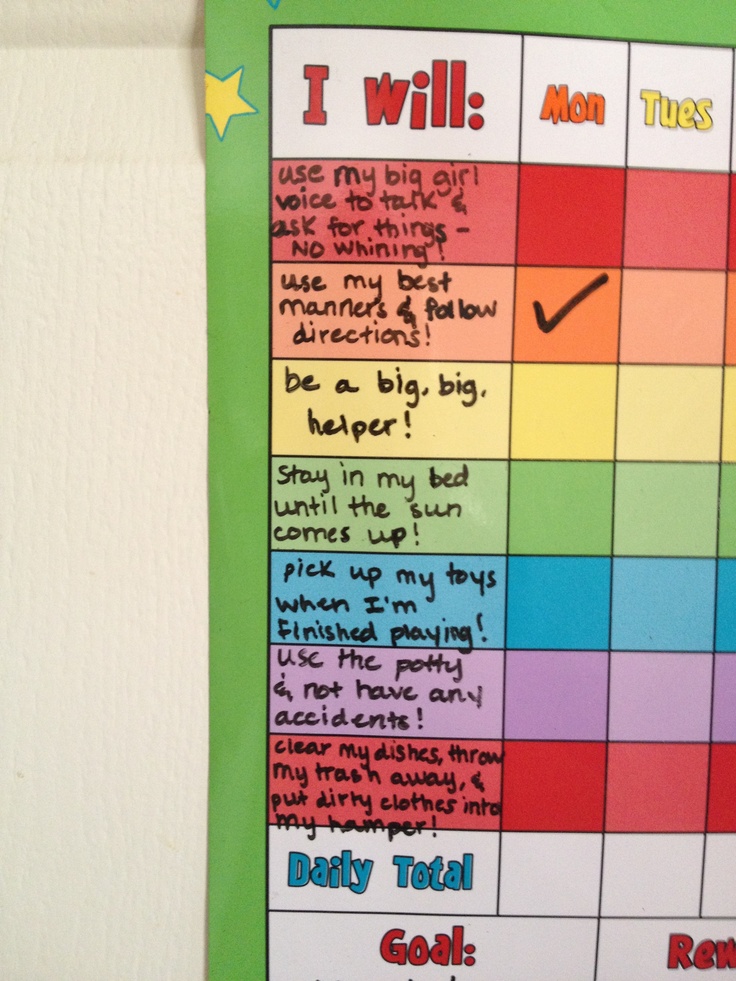 I will: Mon Tues
use my big girl
voice to talk &
ask for things -
NO whining!
use my best
manners & follow
directions!
be a big, big,
helper!
Stay in my bed
until the sun
comes up!
pick up my toys
when I'm
finished playing!
use the potty
& not have any
accidents!
clear my dishes, throw
my trash away, &
put dirty clothes into
my hamper!
Daily Total
Goal: